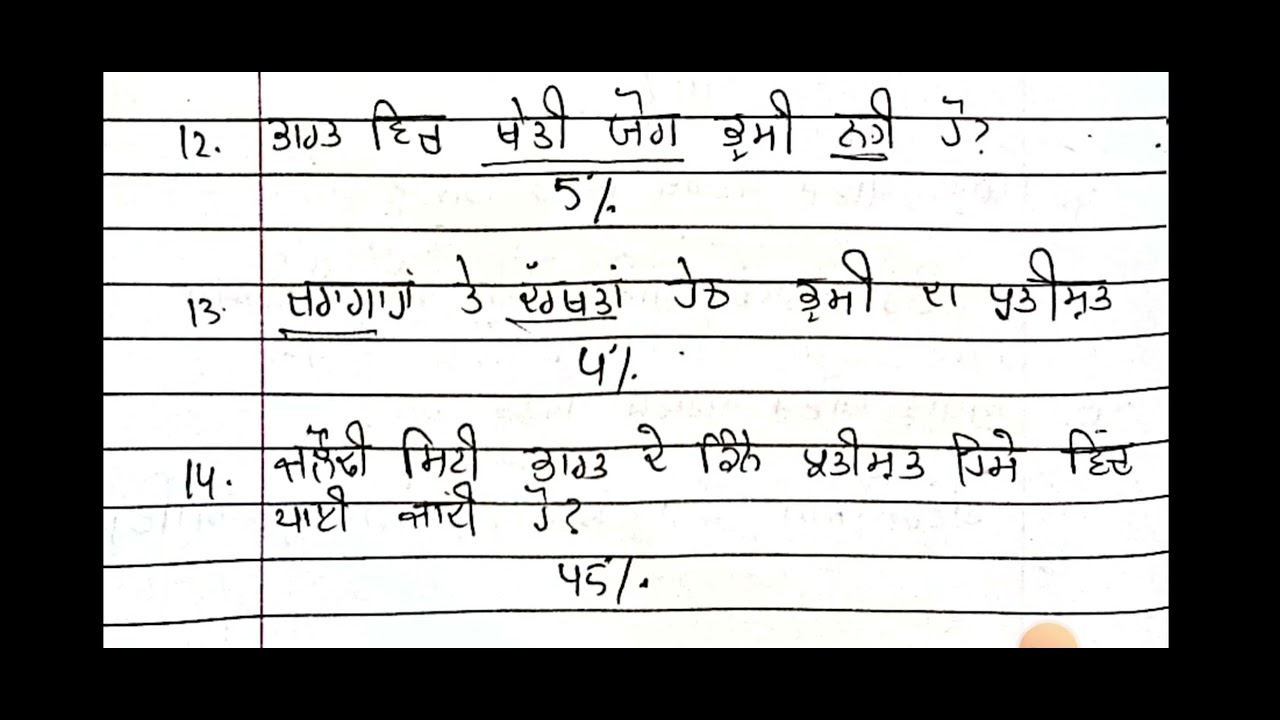 12. ਭਾਰਤ ਵਿਚ ਖੇਤੀ ਯੋਗ ਭੂਮੀ ਨਹੀ ਹੈ?
5%.
13. ਚਰਾਗਾਹਾਂ ਤੇ ਦੱਰਖਤਾਂ ਹੇਠ ਭੂਮੀ ਦਾ ਪ੍ਰਤੀਸ਼ਤ
4%.
14. ਜਲੌਢੀ ਮਿਟੀ ਭਾਰਤ ਦੇ ਕਿੰਨੇ ਪ੍ਰਤੀਸ਼ਤ ਹਿਸੇ ਵਿੱਚ
ਪਾਈ ਜਾਂਦੀ ਹੈ?
45%.